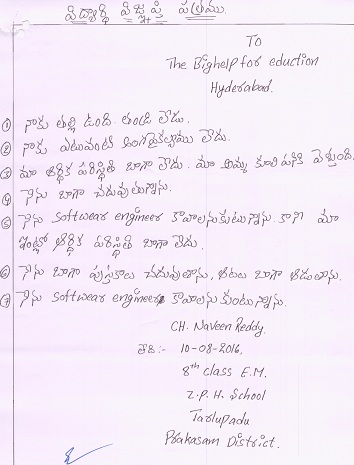 విద్యార్థి విజ్ఞప్తి పత్రము.
To
The Bighelp for eduction
Hyderabad.
① నాకు తల్లి ఉంది. తండ్రి లేడు.
② నాకు ఎటువంటి అంగవైకల్యము లేదు.
③ మా ఆర్థిక పరిస్థితి బాగా లేదు. మా అమ్మ కూలి పనికి వెళ్తుంది.
④ నేను బాగా చదువుతున్నాను.
⑤ నేను softwear engineer కావాలనుకుంటున్నాను. కాని మా
ఇంట్లో ఆర్థిక పరిస్థితి బాగా లేదు.
⑥ నేను బాగా పుస్తకాలు చదువుతాను, ఆటలు బాగా ఆడుతాను.
⑦ నేను softwear engineer కావాలనుకుంటున్నాను.
CH. Naveen Reddy.
తేది:- 10-08-2016.
8th class E.M.
Z.P.H. School
Tarlupadu
Prakasam District.